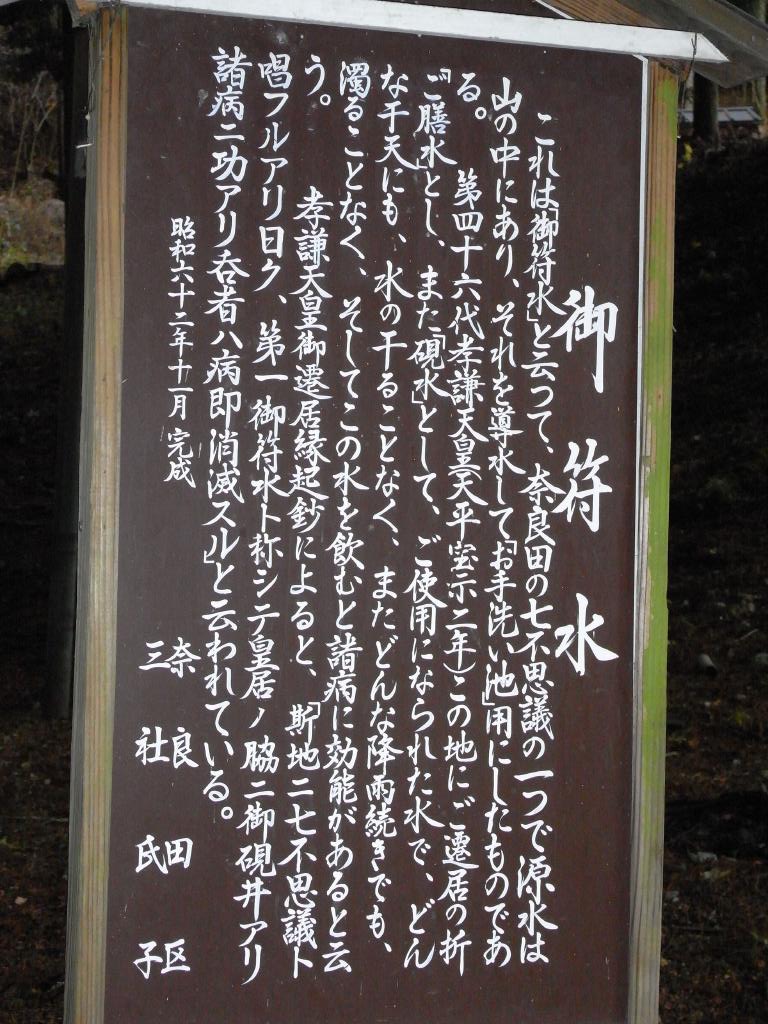 御符水
これは「御符水」と云って、奈良田の七不思議の一つで源水は
山の中にあり、それを導水して「お手洗い池」用にしたものであ
る。　第四十六代孝謙天皇(天平宝示二年)この地にご遷居の折
「ご膳水」とし、また「硯水」として、ご使用になられた水で、どん
な干天にも、水の干ることなく、またどんな降雨続きでも、
濁ることなく、そしてこの水を飲むと諸病に効能があると云
う。　孝謙天皇御遷居縁起鈔によると、「斯地ニ七不思議ト
唱フルアリ曰ク、第一御符水ト称シテ皇居ノ脇ニ御硯井アリ
諸病ニ功アリ呑者ハ病即消滅スル」と云われている。
昭和六十二年十一月 完成
奈良田区
三社氏子